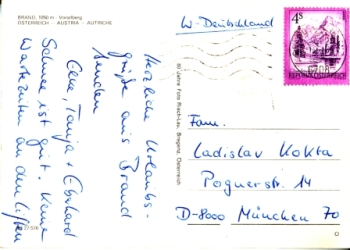 BRAND, 1050 m - Vorarlberg
ÖSTERREICH - AUSTRIA - AUTRICHE
Herzliche Urlaubs-
grüße aus Brand
senden
Tanja + Eberhard
Schnee ist gut. Keine
Wartezeiten an den Liften
W-Deutschland
4S
REPUBLIK ÖSTERREICH
Fam.
Ladislav Kokta
Pognerstr. 14
D-8000 München 70
Foto Risch-Lau, Bregenz, Österreich